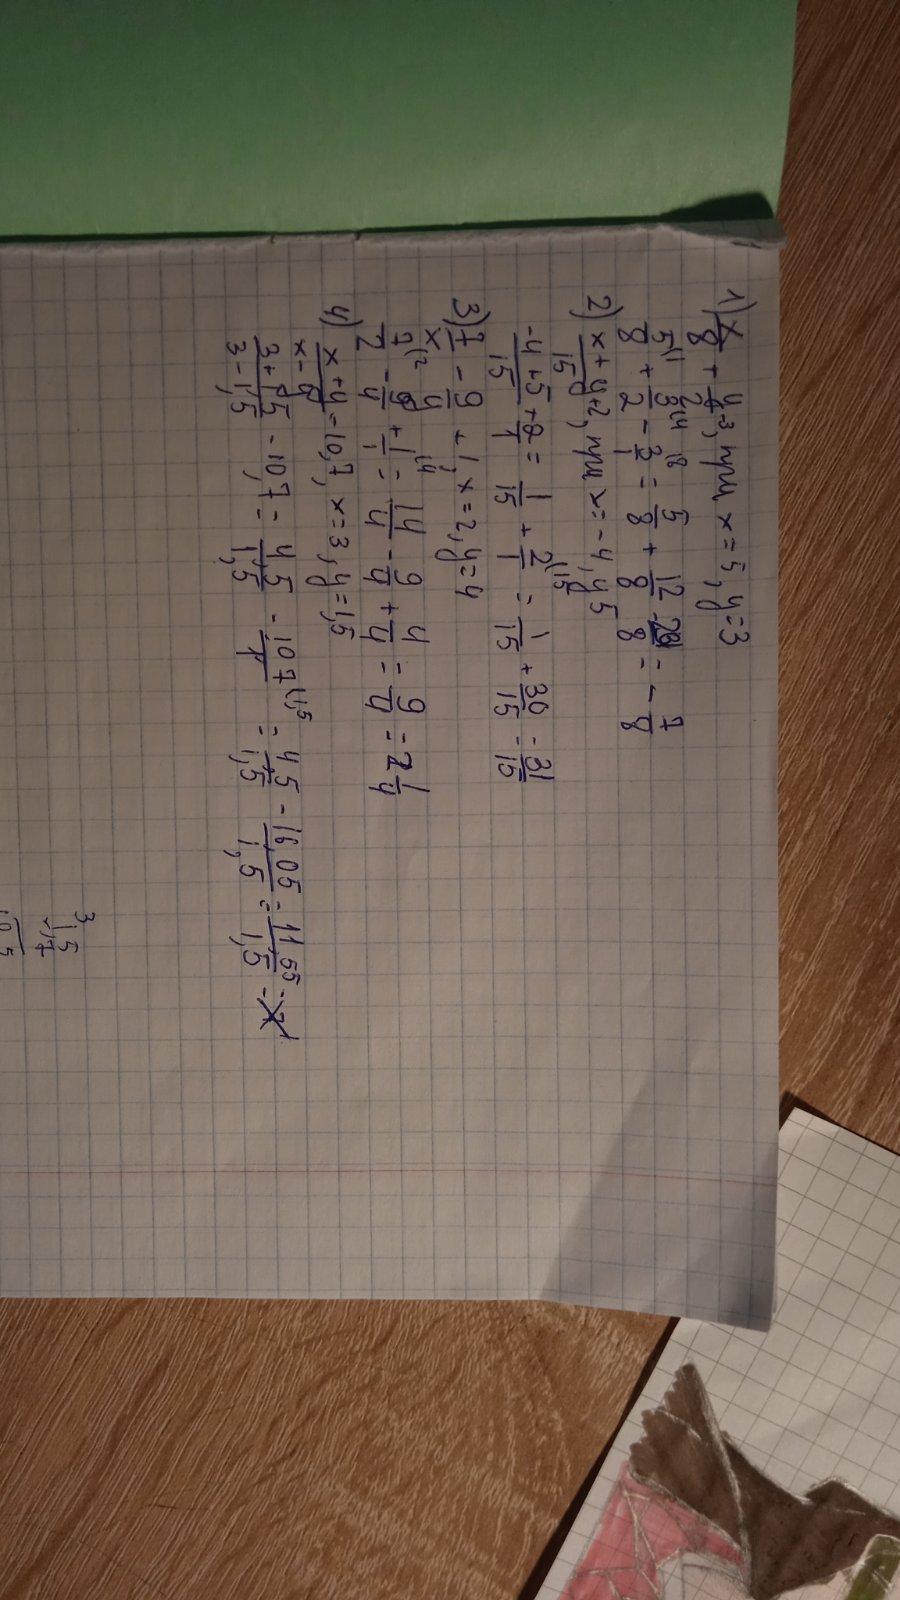 1) x/8 + y/2 - 3, при x = 5, y = 3
5/8 + 3/2 - 3/1 = 5/8 + 12/8 - 24/8 = - 7/8
2) x + y/15 + 2, при x = -4, y 5
-4 + 5/15 + 2/1 = 1/15 + 2/1 = 1/15 + 30/15 = 31/15
3) 7/x - 9/y + 1, x = 2, y = 4
7/2 - 9/4 + 1/1 = 14/4 - 9/4 + 4/4 = 9/4 = 2 1/4
4) x + y/x - y - 10,7, x = 3, y = 1,5
3 + 1,5/3 - 1,5 - 10,7 = 4,5/1,5 - 10,7/1 = 4,5/1,5 - 16,05/1,5 = 11,55/1,5 -
3
1,5